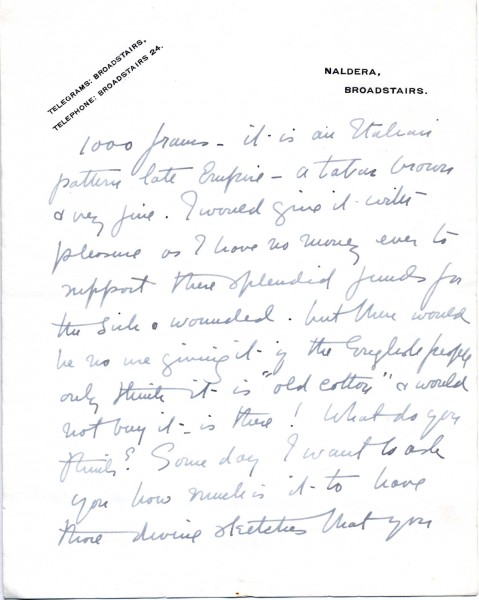 TELEGRAMS: BROADSTAIRS,
TELEPHONE: BROADSTAIRS 24.
NALDERA,
BROADSTAIRS.
1000 francs – it is an Italian
pattern late Empire – a brown
& very fine. I would give it with
pleasure as I have no money ever to
support these splendid funds for
the sick & wounded. but there would
be no use giving it if the English people
only think it is "old cotton" & would
not buy it – is there! What do you
think? Some day I want to ask
you how much is it to have
those divine sketches that you